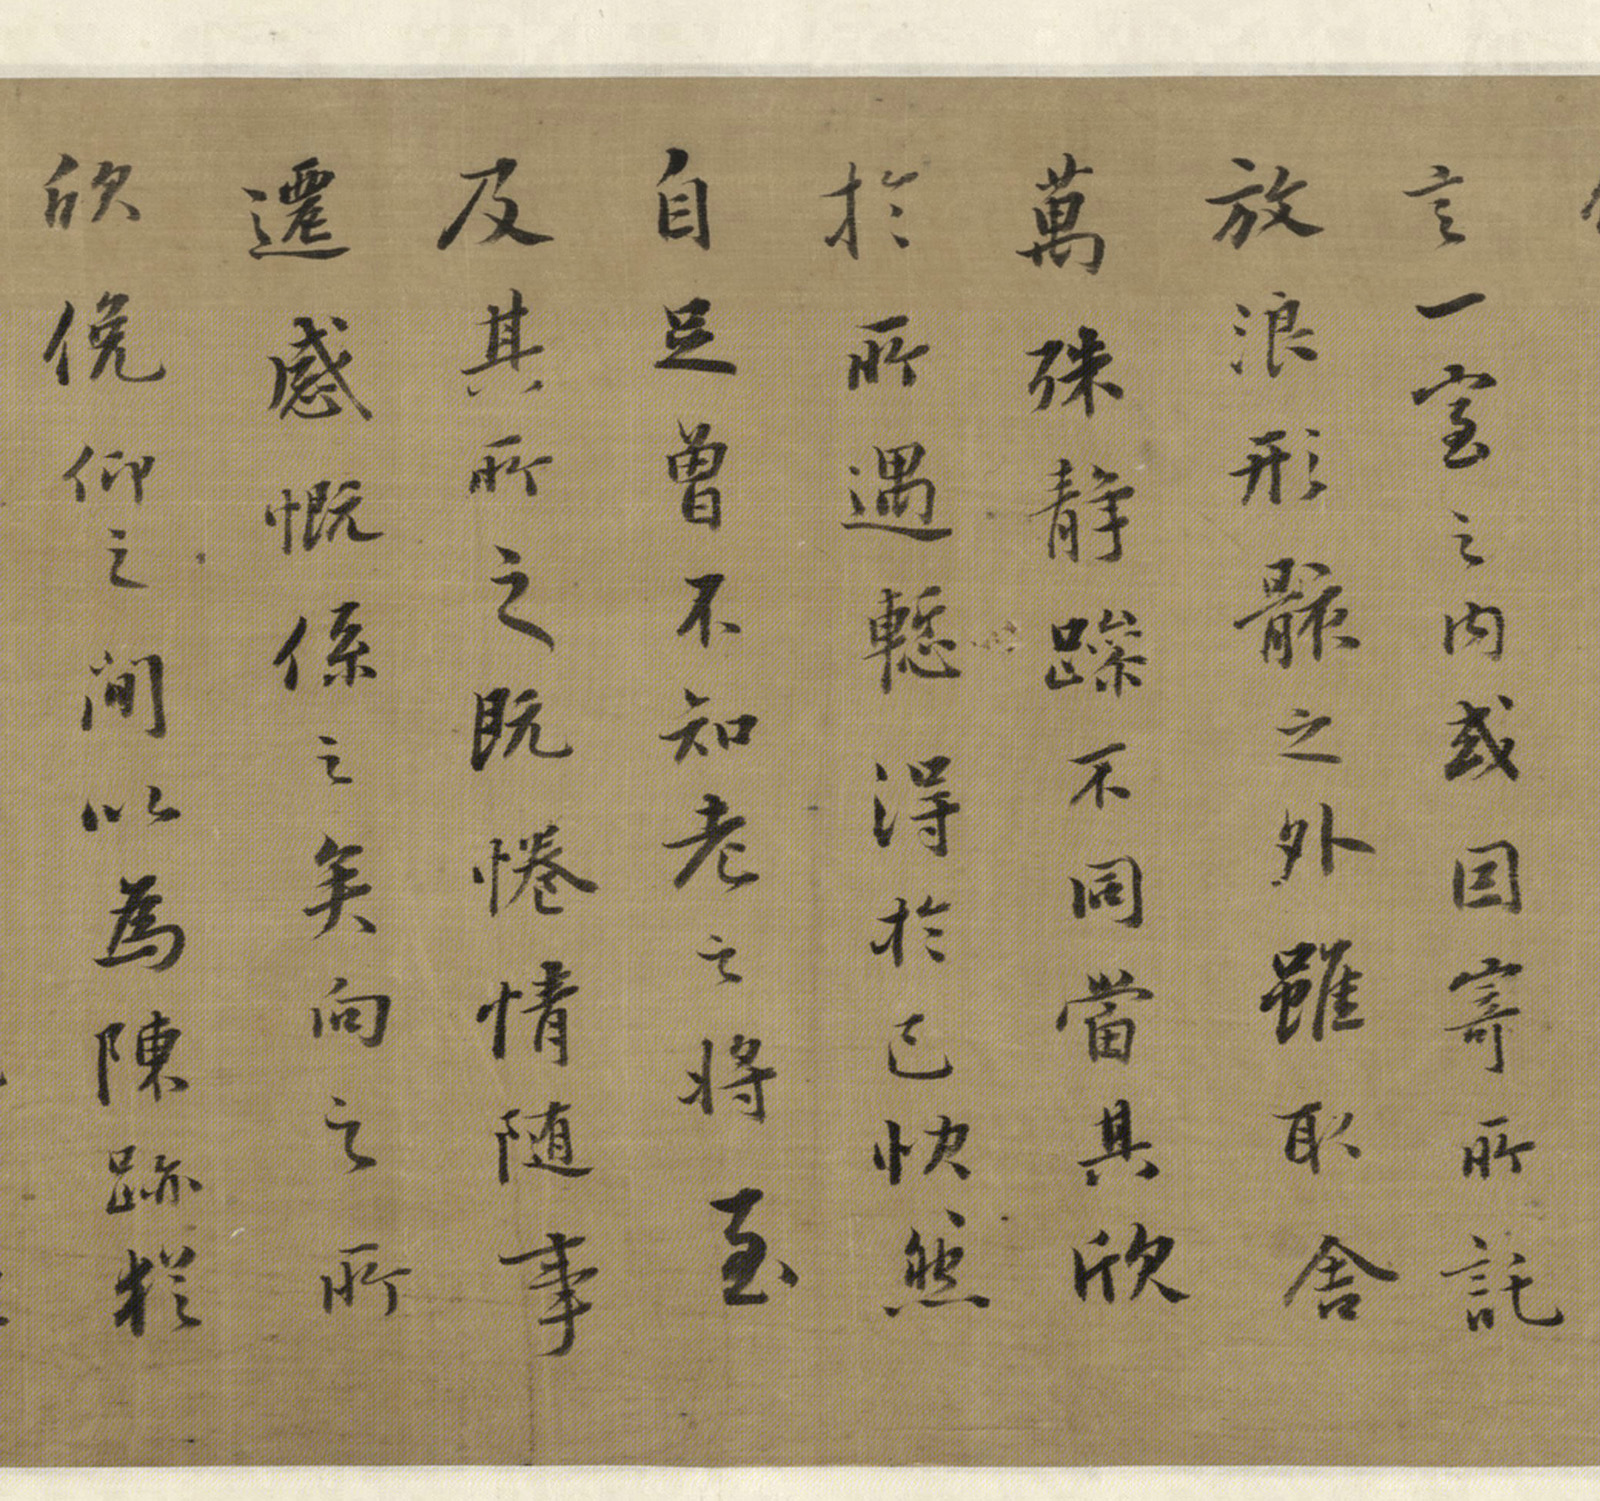 言一室之内或因寄所託
放浪形骸之外雖取舍
萬殊静躁不同當其欣
於所遇蹔得於己快然
自足曾不知老之將至
及其所之既惓情随事
遷感慨係之矣向之所
欣俛仰之間以為陳跡猶